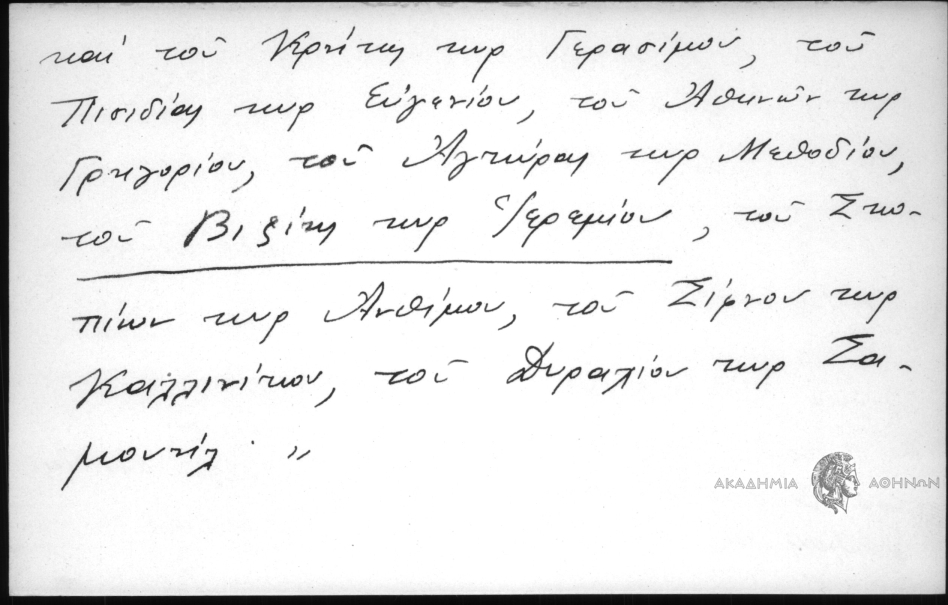 καί τοῦ Κρήτης κυρ Γερασίμου, τοῦ
Πισιδίας κυρ Εὐγενίου, τοῦ Ἀθηνῶν κυρ
Γρηγορίου, τοῦ Ἀγκύρας κυρ Μεθοδίου,
τοῦ Βιζύης κυρ Ἱερεμίου, τοῦ Σκο-
πίων κυρ Ἀνθίμου, τοῦ Σίφνου κυρ
Καλλινίκου, τοῦ Δυραχίου κυρ Σα-
μουήλ "
ΑΚΑΔΗΜΙΑ ΑΘΗΝΩΝ